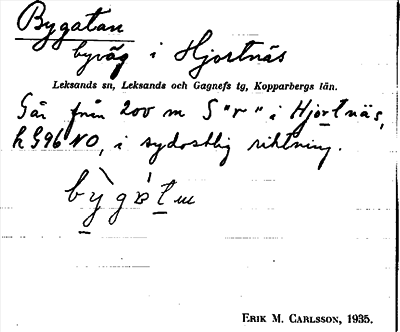 Bygatan
byväg i Hjortnäs
Leksands sn, Leksands och Gagnefs tg, Kopparbergs län.
Går från 200 m S "r" i Hjortnäs,
k G96 NO, i sydostlig riktning.
ERIK M. CARLSSON, 1935.